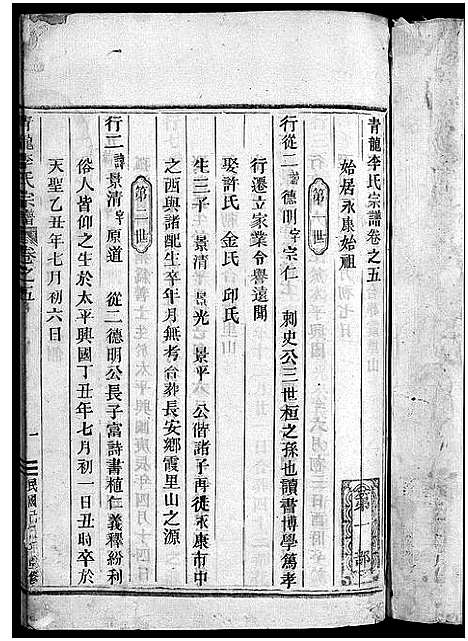 青龍李氏宗譜卷之五
始居永康始祖
第一世
行從二諱德明字宗仁 刺史公三世桓之孫也讀書博學篤孝
行遷立家業令譽遠聞
娶許氏 金氏 邱氏
生三子 景清 景光 景平 公偕諸子再徙永康市中
之西與諸配生卒年月無考合葬長安鄉霞里山之源
第二世
行二諱景清字原道 從二德明公長子富詩書植仁義釋紛利
俗人皆仰之生於太平興國丁丑年七月初一日丑時卒於
天聖乙丑年七月初六日
青龍李氏宗譜 卷之五
一
民國
第一部